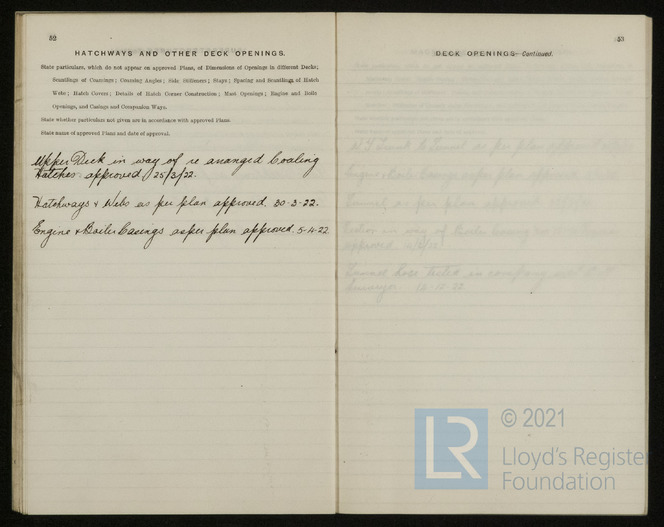 52
HATCHWAYS AND OTHER DECK OPENINGS.
State particulars, which do not appear on approved Plans, of Dimensions of Openings in different Decks;
Scantlings of Coamings; Coaming Angles; Side Stiffeners; Stays; Spacing and Scantlings of Hatch
Webs; Hatch Covers; Details of Hatch Corner Construction; Mast Openings; Engine and Boiler
Openings, and Casings and Companion Ways.
State whether particulars not given are in accordance with approved Plans.
State name of approved Plans and date of approval.
Upper Deck in way of re arranged Coaling
Hatches: approved, 25/3/22.
Hatchways & Webs as per plan approved, 30-3-22.
Engine & Boiler Casings as per plan approved 5-4-22
53
DECK OPENINGS—Continued.
as per plan approved
Engine & Boiler Casings as per plan approved
as per plan approved
in way of Boiler
approved
Tunnel hose tested in company with
Surveyor
LR
© 2021
Lloyd's Register
Foundation